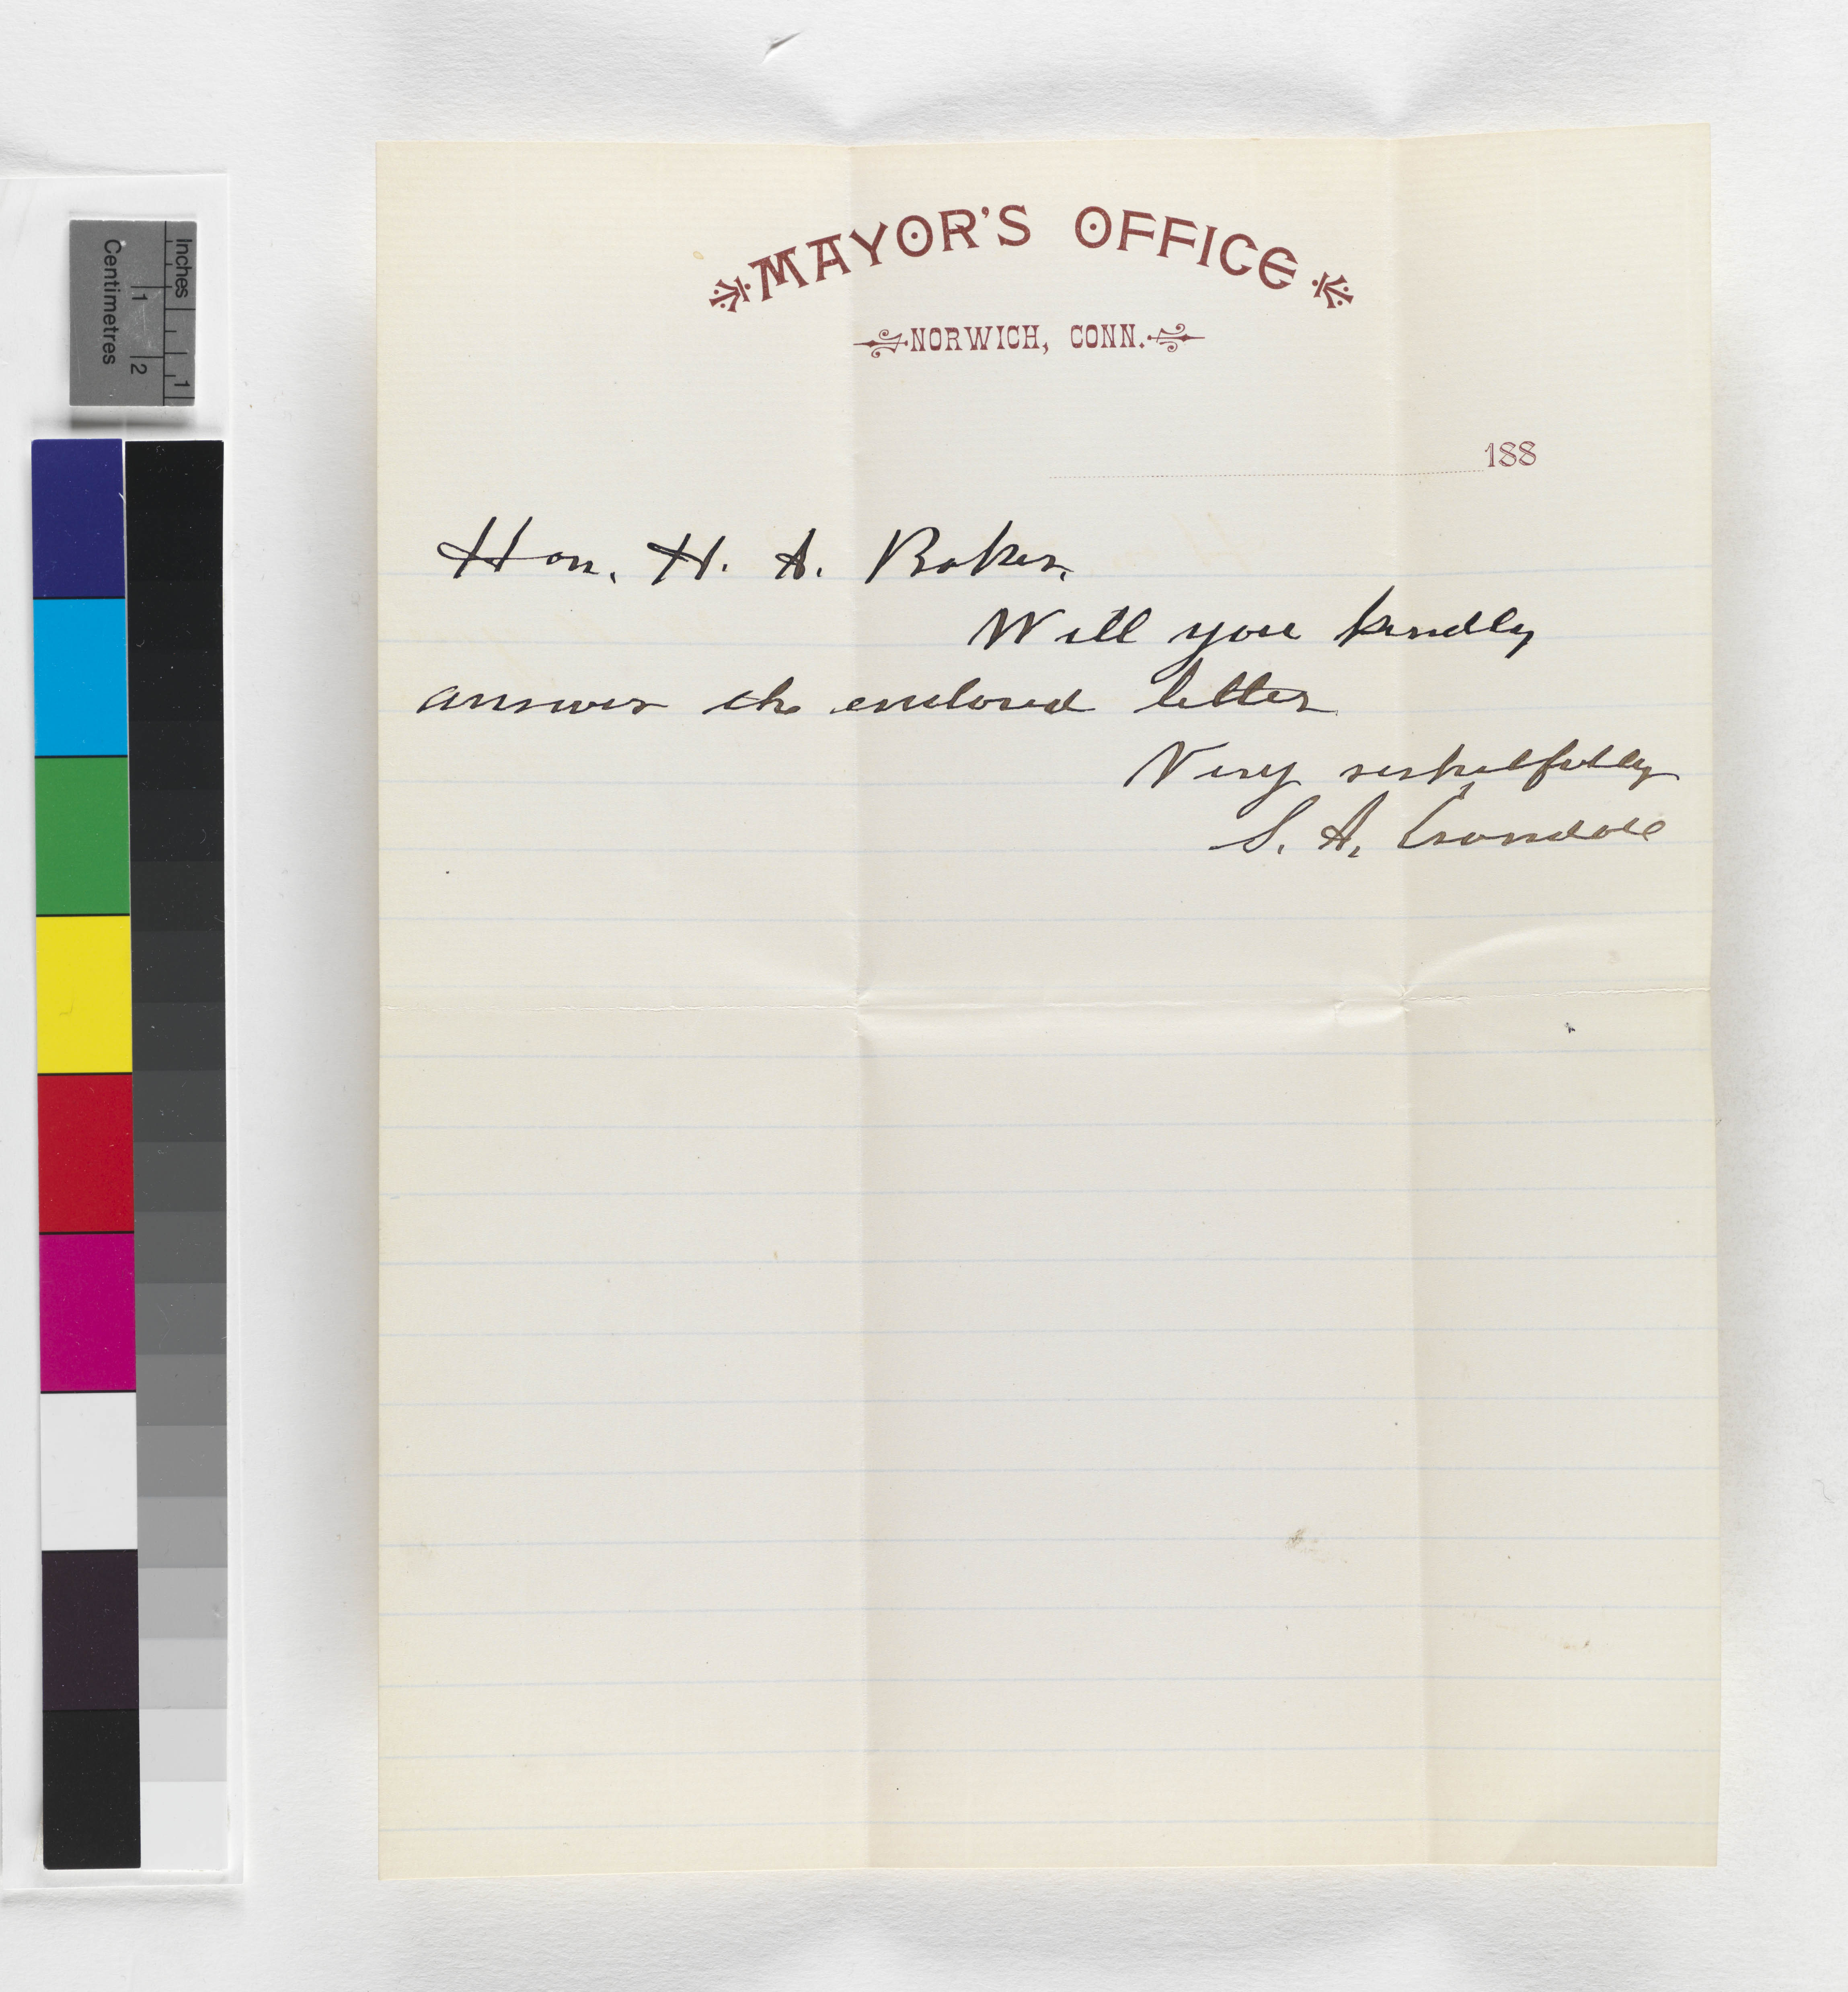 MAYOR'S OFFICE
NORWICH, CONN.
188
Hon. H. A. Baker,
Will you kindly
answer the enclosed letter
Very respectfully
S. A. Crandall
Inches
1
Centimetres
1 2